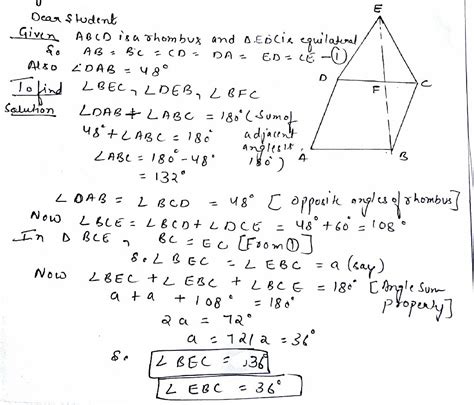 Dear Student
Given ABCD is a rhombus and Δ EDC is equilateral
So AB = BC = CD = DA = ED = CE — ①
Also ∠DAB = 48°
To find ∠BEC, ∠DEB, ∠BFC
Solution ∠DAB + ∠ABC = 180° (Sum of
48° + ∠ABC = 180° adjacent
∠ABC = 180° - 48° angles is
= 132° 180°)
E
D
F
C
A
B
∠DAB = ∠BCD = 48° [Opposite angles of rhombus]
Now ∠BCE = ∠BCD + ∠DCE = 48° + 60° = 108°
In Δ BCE, BC = EC [From ①]
So ∠BEC = ∠EBC = a (say)
Now ∠BEC + ∠EBC + ∠BCE = 180° [Angle Sum
a + a + 108° = 180° property]
2a = 72°
a = 72/2 = 36°
So ∠BEC = 36°
∠EBC = 36°